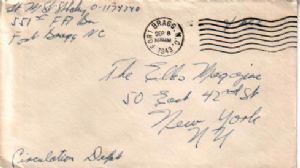 551st F.A. Bn
Fort Bragg NC
FORT BRAGG, N.C.
SEP 8
1943
Free
The Elks Magazine
50 East 42nd St
New York
NY
Circulation Dept